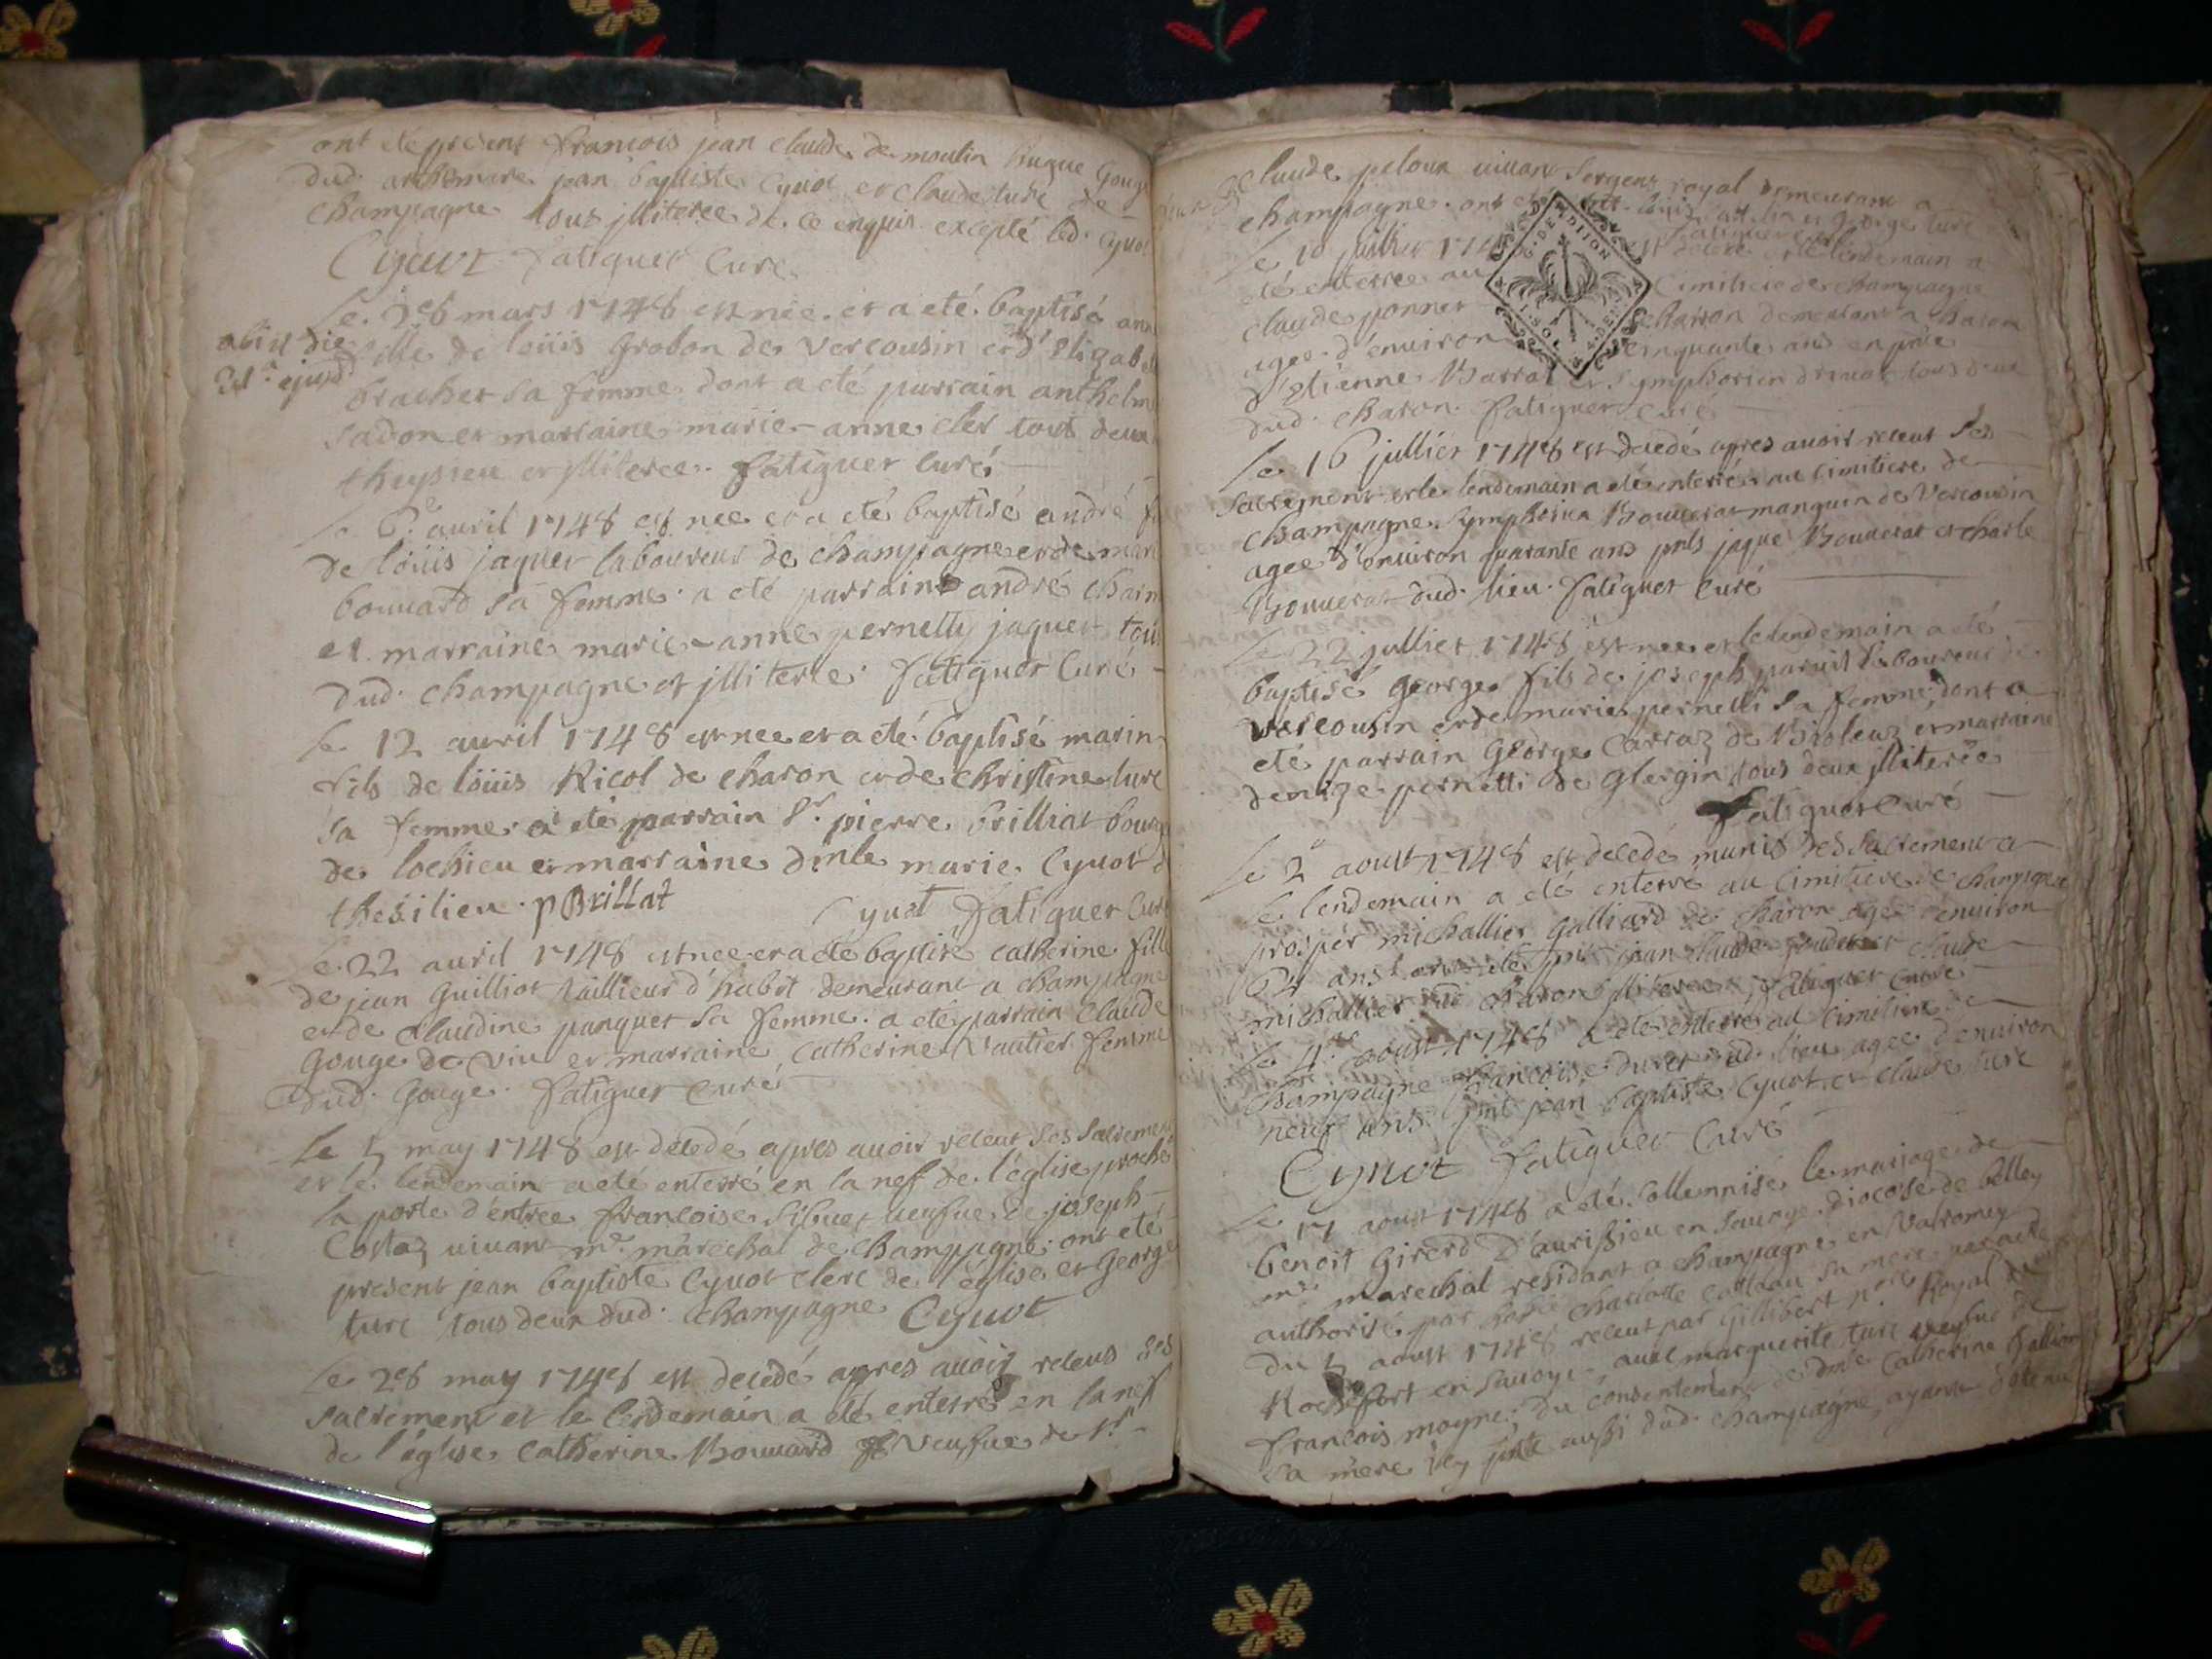 ont eté present francois jean claude de moulin hugue Gouge
dud. anthemare jean baptiste Cyvot et claude turc de
Champagne tous jlliteree de ce enquis excepté led. Cyvot
Cyuot fatiguet Curé
le 28 mars 1748 est nee et a eté baptisé
obiit die
fille de loüis Grobon de Vercousin et d'
brachet sa femme dont a eté parrain anthelme
sadon et marraine marie-anne clér tout deux
theysieu et jlliteree. fatiguet Curé
le 6e avril 1748 est nee et a eté baptisé andré
de loüis jaquet laboureur de champagne et de
bouuard sa femme a eté parrain andré
et marraine marie-anne pernetty jaquet tous
dud. champagne et jlliteree. fatiguet Curé
le 12 avril 1748 est nee et a eté baptisé marin
fils de loüis Nicol de charon et de christine turc
sa femme a eté parrain Sr. pierre brilliat
de lochieu et marraine dmle marie Cyuot
thesilieu. p Brillat Cyuot fatiguet Curé
le 22 avril 1748 est nee et a eté baptisé catherine fille
de jean Guilliot taillieur d'habit demeurant a champagne
et de claudine panquet sa femme. a eté parrain Claude
Gouge de Viu et marraine Catherine Vautier femme
dud. Gouge. fatiguet Curé
le 5 may 1748 est decedé apres auoir receut ses sacrement
et le lendemain a eté enterré en la nef de l'église proche
la porte d'entree francoise Sibuet ueufue de joseph
Costaz uiuant me. maréchal de champagne. ont eté
present jean baptiste Cyuot clerc de l'église et George
turc tous deux dud. champagne Cyuot
le 28 may 1748 est decedé apres auoir receus ses
sacrement et le lendemain a eté enterré en la nef
de l'église Catherine Bouuard Veufue de Sr.
Claude peloux uiuant Sergent royal demeurant a
champagne. ont eté George turc
le 10 juillier 174 est decedé et le lendemain a
eté enterree au Cimitiere de champagne
claude ponnet demeurant a charon
agee d'enuiron cinquante ans en pnce
d'Etienne Barral et Symphorien tous deux
dud. charon. fatiguet curé
le 16 jullier 1748 est decedé apres auoir receut ses
sacrement et le lendemain a eté enterré au cimitiere de
champagne Bouuerat de Vercousin
agee d'enuiron quarante ans pnts jaque Bouuerat et charle
Bouuerat dud. lieu. fatiguet Curé
le 22 jullier 1748 est nee et le lendemain a eté
baptisé George fils de joseph laboureur de
vercousin et de marie pernetti sa femme, dont a
eté parrain George Carraz de et marraine
denize pernetti de Glergin tous deux jlliteree
fatiguet Curé
le 2e aoust 1748 est decedé munis des sacrement et
le lendemain a eté enterré au Cimitiere de champagne
prosper michallier Galliard de charon agee d'enuiron
ans. jean claude et claude
michallier dud. charon jlliteree. fatiguet Curé
le aoust 1748 a eté enterré au cimitiere de
Champagne francoise duret dud. lieu agee d'enuiron
neuf ans. pnt jean baptiste Cyuot et claude turc
Cyuot fatiguet Curé
le 17 aoust 1748 a eté sollennisé le mariage de
benoit Girerd D'aurissieu en Sauoye diocese de belley
me. marechal residant a champagne en Valromey
authorisé par charlotte sa mere par acte
du 5 aoust 1748 receut par Gillibert nore. Royal
Rochefort en sauoye, auec marguerite turc veufue de
francois moyne; du consentement de dme Catherine
sa mere jcy pnte aussi dud. champagne, ayant obtenu